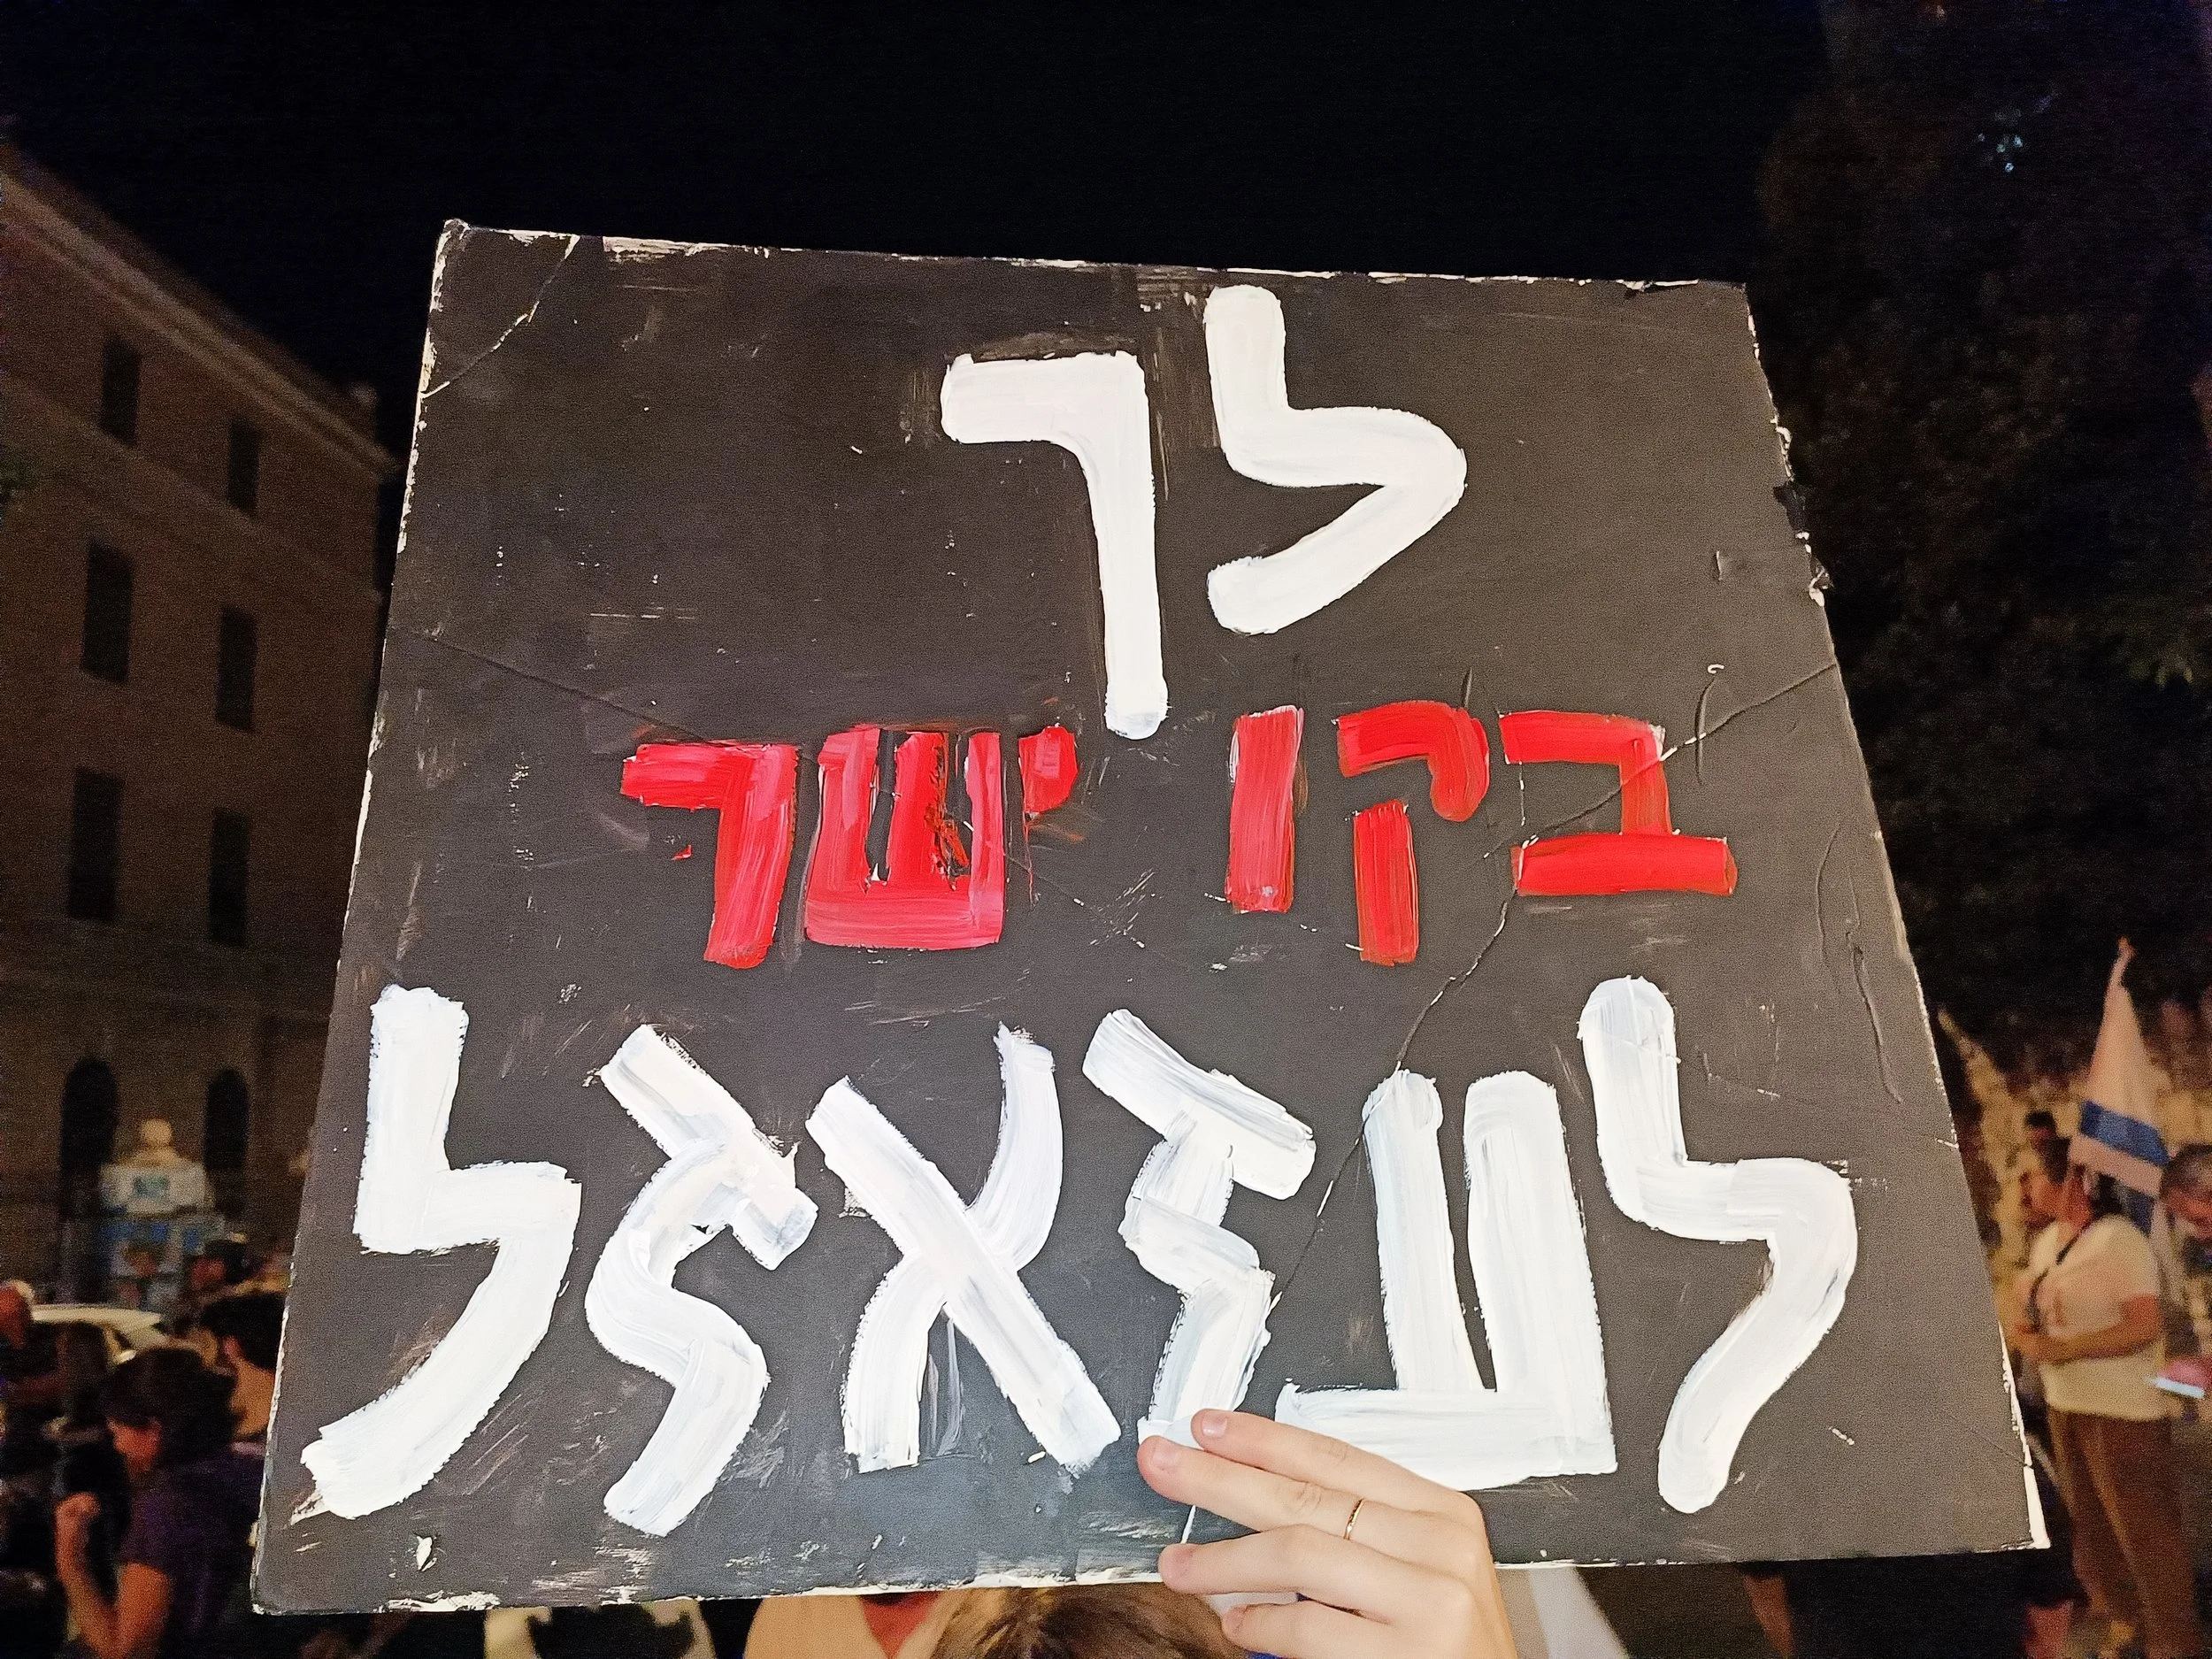 לך
בקו ישר
לעזאזל